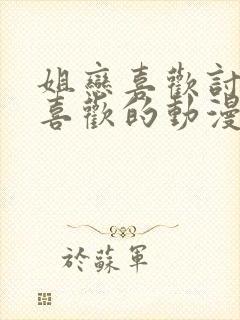 姐戀喜歡討
喜歡的動漫
於蘇軍